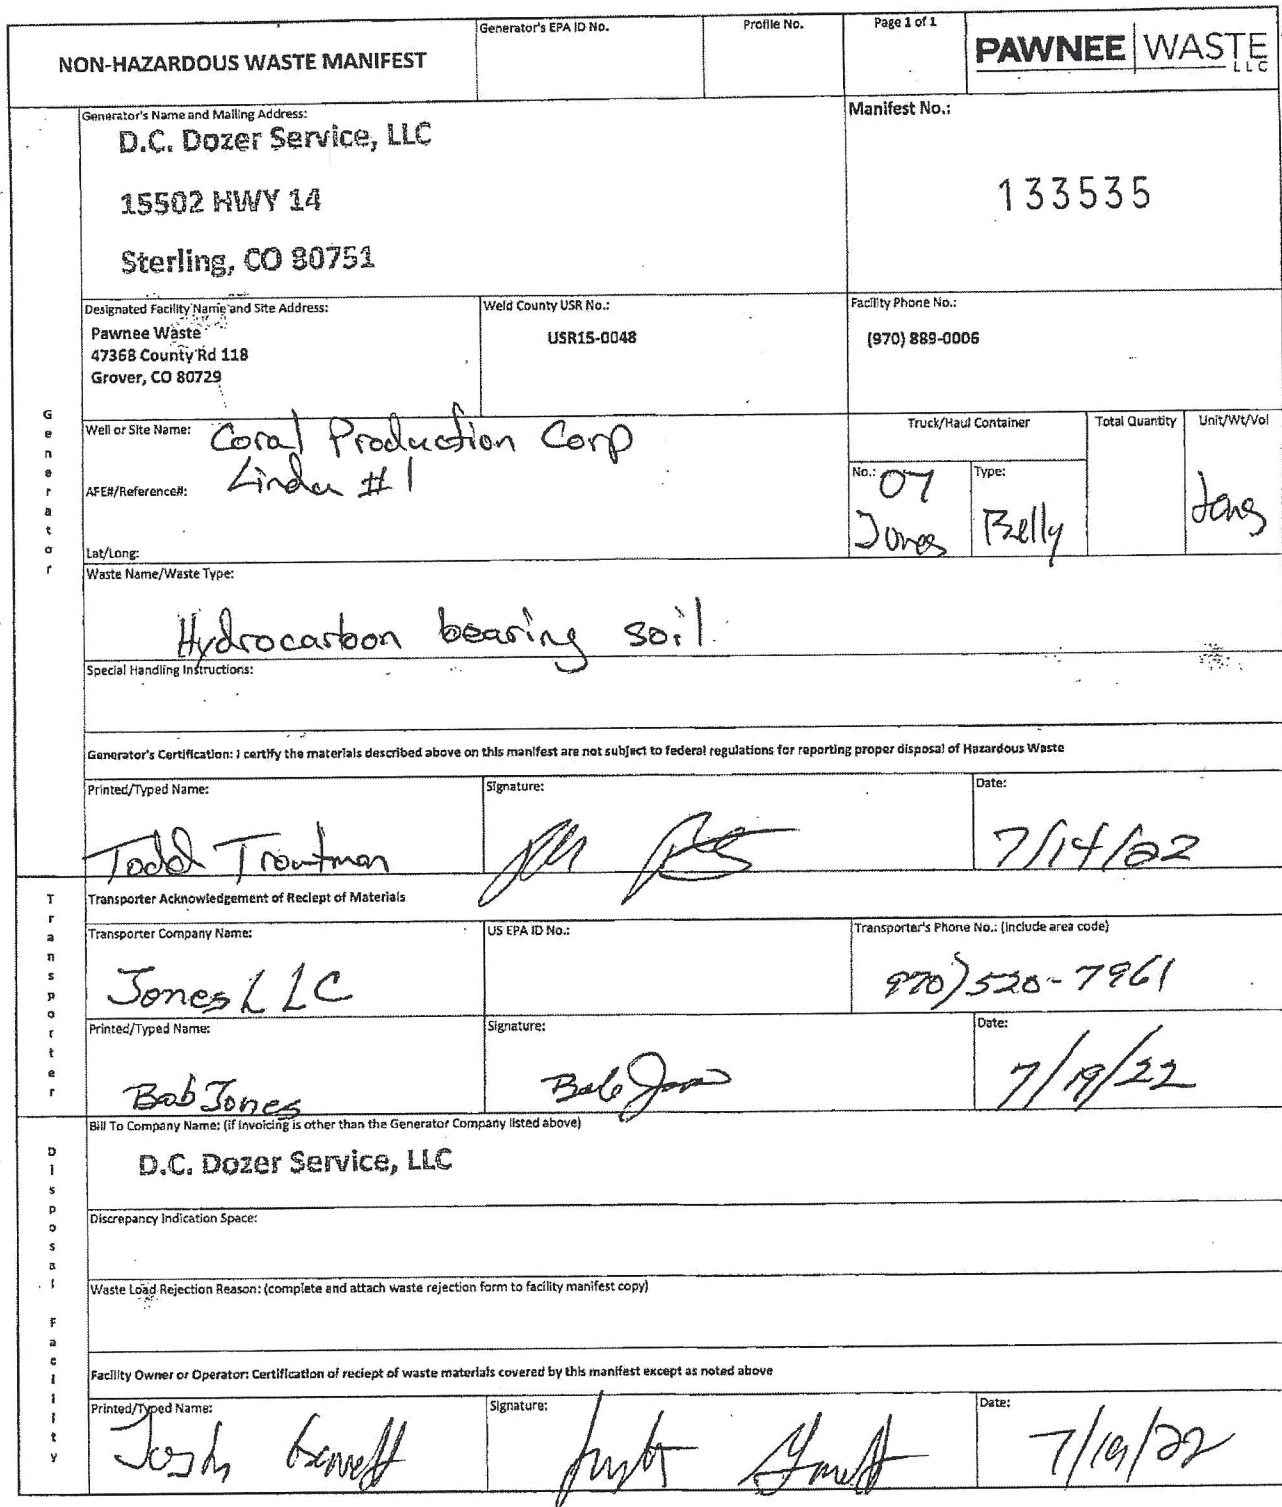 NON-HAZARDOUS WASTE MANIFEST
Generator's EPA ID No.
Profile No.
Page 1 of 1
PAWNEE WASTE
LLC
Generator
Generator's Name and Mailing Address:
D.C. Dozer Service, LLC
15502 HWY 14
Sterling, CO 80751
Manifest No.:
133535
Designated Facility Name and Site Address:
Pawnee Waste
47368 County Rd 118
Grover, CO 80729
Weld County USR No.:
USR15-0048
Facility Phone No.:
(970) 889-0006
Well or Site Name: Coral Production Corp
Linda #1
AFE#/Reference#:
Lat/Long:
Truck/Haul Container
No.: 07
Jones
Type:
Belly
Total Quantity
Unit/Wt/Vol
Waste Name/Waste Type:
Hydrocarbon bearing soil
Special Handling Instructions:
Generator's Certification: I certify the materials described above on this manifest are not subject to federal regulations for reporting proper disposal of Hazardous Waste
Printed/Typed Name:
Todd Troutman
Signature:
Date:
7/14/22
Transporter
Transporter Acknowledgement of Reciept of Materials
Transporter Company Name:
Jones LLC
US EPA ID No.:
Transporter's Phone No.: (Include area code)
970) 520-7961
Printed/Typed Name:
Bob Jones
Signature:
Bob Jones
Date:
7/19/22
Disposal Facility
Bill To Company Name: (if invoicing is other than the Generator Company listed above)
D.C. Dozer Service, LLC
Discrepancy Indication Space:
Waste Load Rejection Reason: (complete and attach waste rejection form to facility manifest copy)
Facility Owner or Operator: Certification of reciept of waste materials covered by this manifest except as noted above
Printed/Typed Name:
Josh
Signature:
Date:
7/19/22